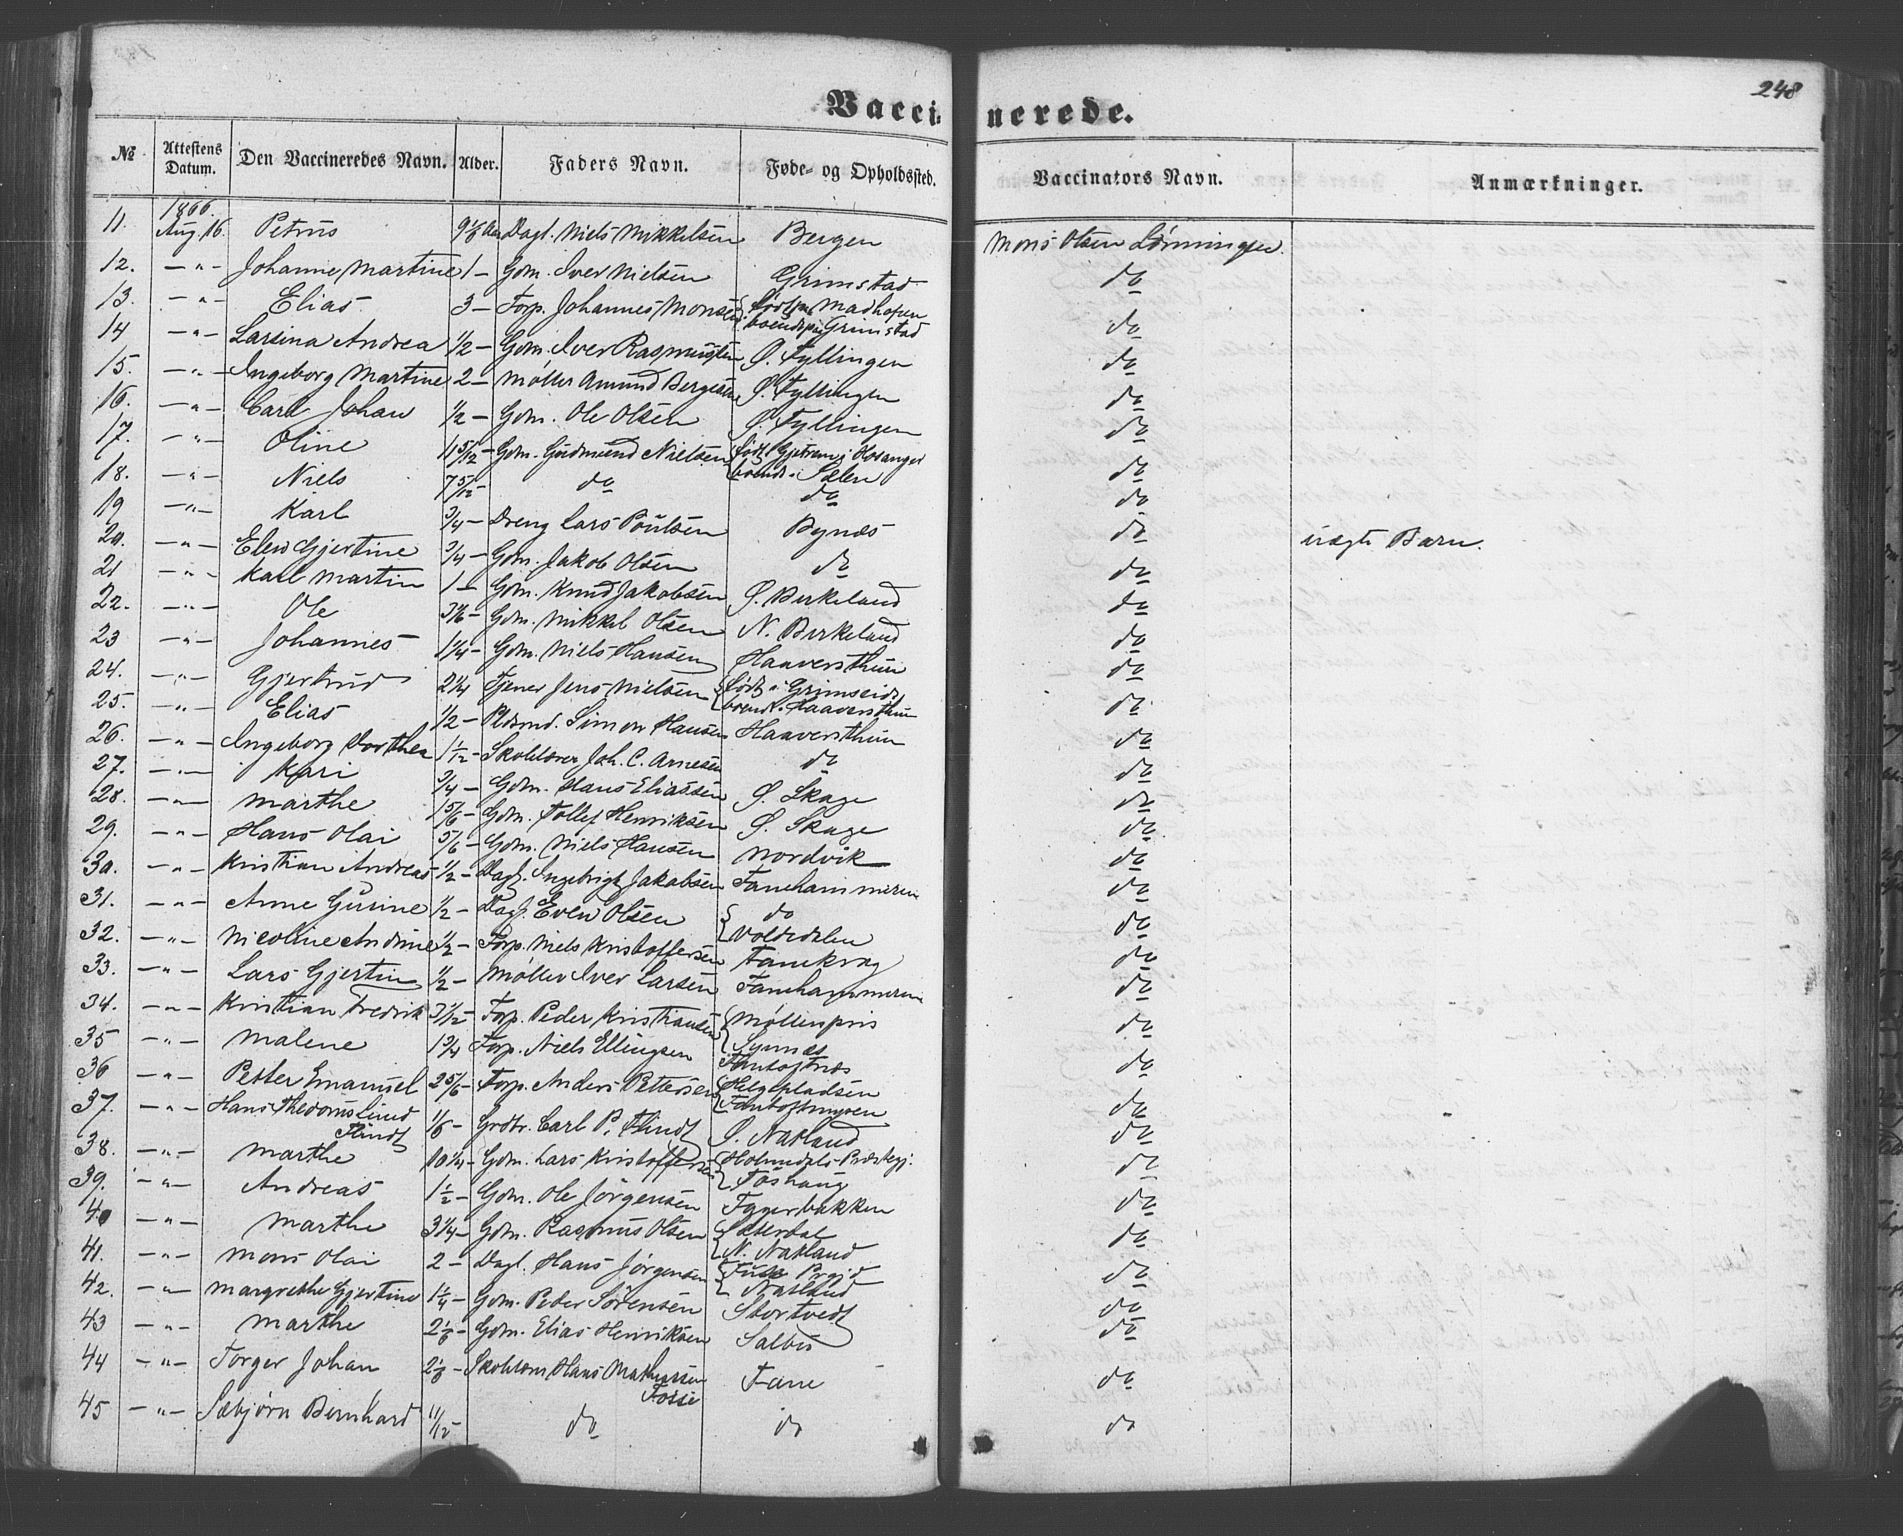 248
Vacci- nerede.
№ Attestens Datum. Den Vaccineredes Navn. Alder. Faders Navn. Føde- og Opholdssted. Vaccinators Navn. Anmærkninger.
1866.
11. Aug. 16. Petrus Dagl. Niels Mikkelsen Bergen Mons Olsen Lønningen.
12. — " — Johanne Martine 1 — Gdm. Iver Nielsen Grimstad do
13. — " — Elias 3 — Forp. Johannes Monsen født paa Madhofen do
boende paa Grimstad
14 — " — Larsina Andrea 1/2 — Gdm. Iver Rasmussen Ø. Fyllingen do
15. — " — Ingeborg Martine 2 — Møller Amund Bergesen Ø. Fyllingen do
16. — " — Carl Johan 1/2 — Gdm. Ole Olsen Ø. Fyllingen do
17. — " — Oline 11 5/12 — Gdm. Gudmund Nielsen født i Hosanger do
boende i Sælen
18. — " — Niels 7 5/12 — do do do
19 — " — Karl 3/4 — Dreng Lars Poulsen Bynæs do uægte Barn.
20. — " — Elen Gjertine 3/4 — Gdm. Jakob Olsen do do
21 — " — Karl Martin 1 — Gdm. Knud Jakobsen Ø. Birkeland do
22. — " — Ole Gdm. Mikkel Olsen N. Birkeland do
23 — " — Johannes 1 1/4 — Gdm. Niels Hansen Haaversthun do
24. — " — Gjertrud 2 1/4 Tjener Jens Nielsen født i Grimseid do
boende i Haaversthun
25. — " — Elias 1/2 — Pldsmd. Simon Hansen Haaversthun do
26. — " — Ingeborg Dorthea 1 1/2 — Skolelærer Joh. C. Arnesen do do
27. — " — Kari 3/4 — Gdm. Hans Eliassen Ø. Skage do
28. — " — Marthe 1 5/6 — Gdm. Tollef Henriksen Ø. Skage do
29. — " — Hans Olai 5/6 — Gdm. Niels Hansen Nordvik do
30. — " — Kristian Andreas 1/2 — Dagl. Ingebrigt Jakobsen Fanehammeren do
31. — " — Anne Gurine 1/2 — Dagl. Even Olsen do do
Voldedalen
32. — " — Nicoline Andrine 1/2 — Forp. Niels Kristoffersen Fanekrog do
33. — " — Lars Gjertin 1/2 — Møller Iver Larsen Fanehammeren do
34. — " — Kristian Fredrik Forp. Peder Kristiansen Møllenpris do
Synnæs
35 — " — Malene 1 3/4 Forp. Niels Ellingsen Fantoftnæs do
36 — " — Petter Emanuel 2 5/6 — Forp. Anders Pettersen Helgepladsen do
Fantoftmyren
37. — " — Hans Lund 1/6 — Grdbr. Carl P. Flindt Ø. Natland do
Flindt
38. — " — Marthe 10 1/4 — Gdm. Lars Kristoffersen Holmedals Præstegj. do
39. — " — Andreas 1 1/2 — Gdm. Ole Jørgensen Tyggerbakken do
40 — " — Marthe 3 1/4 — Gdm. Rasmus Olsen Sæterdal do
N. Natland
41. — " — Mons Olai 2 — Dagl. Hans Jørgensen do
Natland
42. — " — Margrethe Gjertine 1 1/4 — Gdm. Peder Sørensen Stortvedt do
43 — " — Marthe Gdm. Elias Henriksen Salbu do
44 — " — Torger Johan Hans Mathiassen Fane do
Fosse
45 — " — Sæbjørn Bernhard 11/12 — do do do